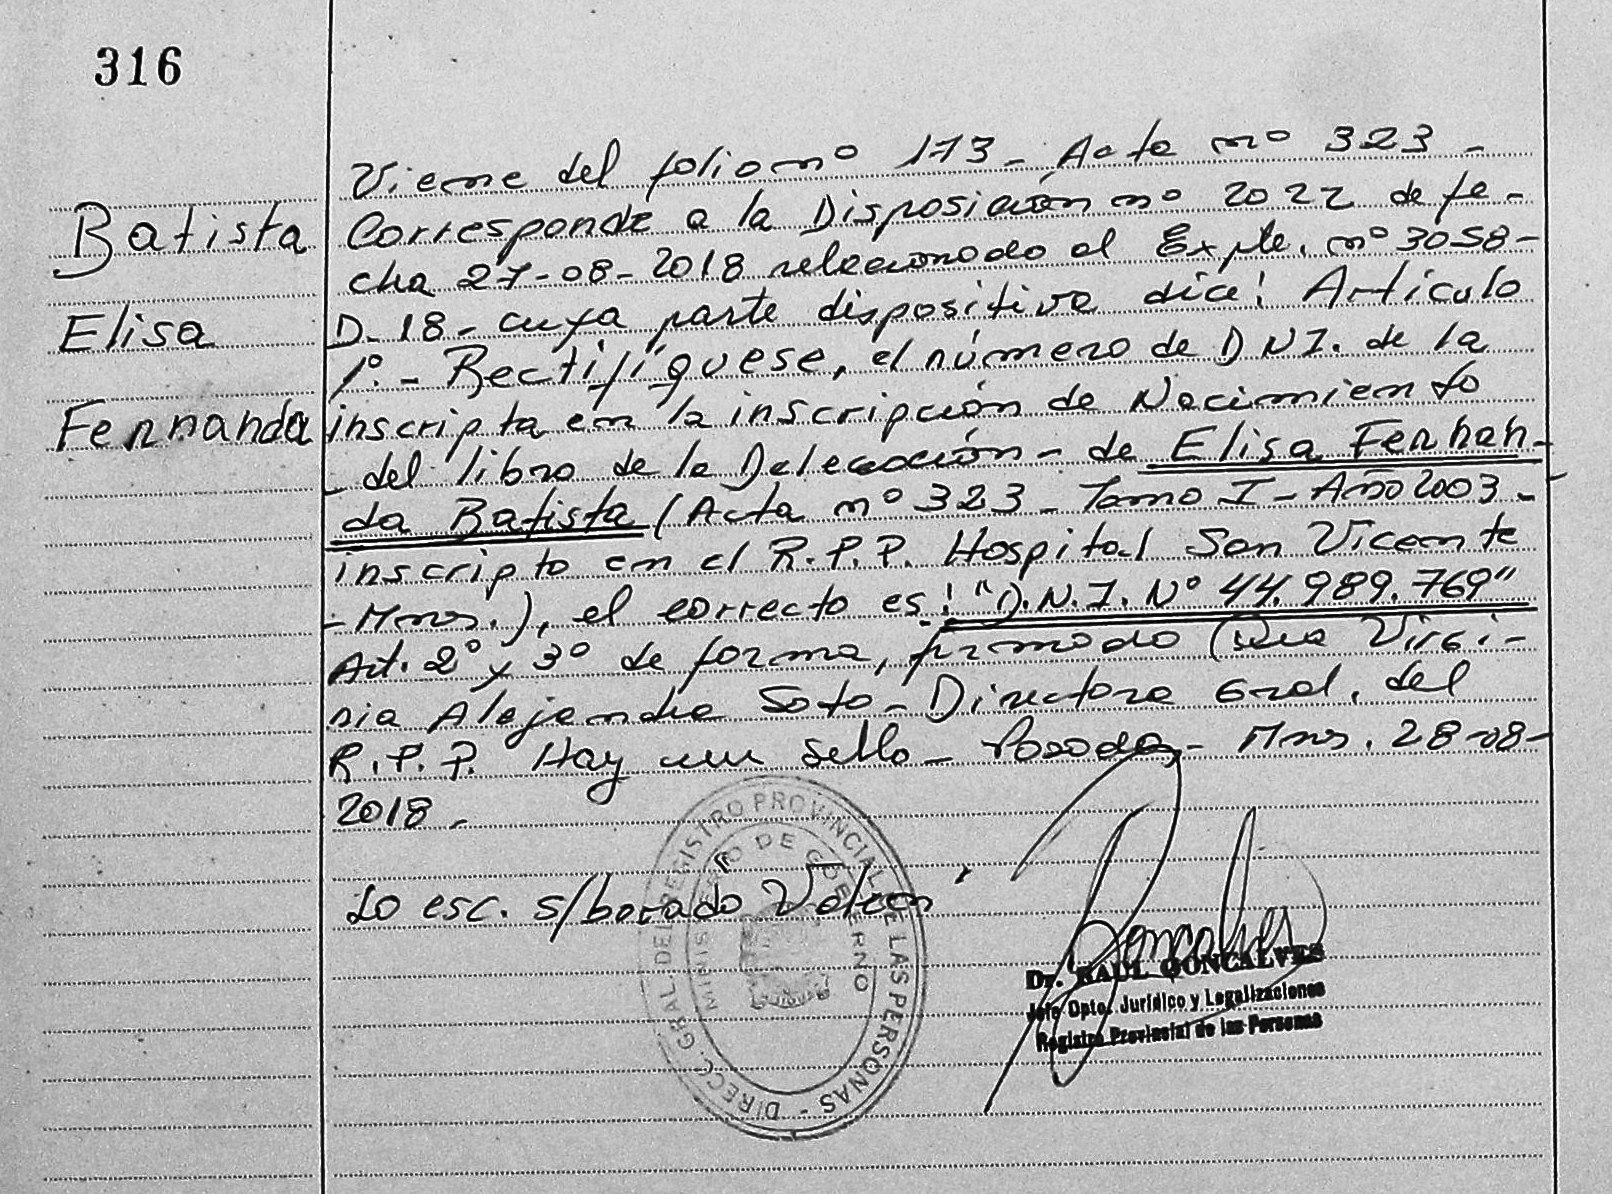 316
Batista
Elisa
Fernanda
Viene del folio nº 173 - Acta nº 323 -
Corresponde a la Disposición nº 2022 de fe-
cha 27-08-2018 relacionado al Expte. nº 3058-
D-18- cuya parte dispositiva dice: Artículo
1º.- Rectifíquese, el número de DNI. de la
inscripta en la inscripción de Nacimiento
del libro de la Delegación - de Elisa Fernan-
da Batista (Acta nº 323 - Tomo I - Año 2003 -
inscripto en el R.P.P. Hospital San Vicente
- Mnes.), el correcto es: "D.N.I. Nº 44.989.769"
Art. 2º y 3º de forma, firmado Virgi-
nia Alejandra Soto - Directora Gral. del
R.P.P. Hay un sello - Posadas - Mnes. 28-08-
2018 -
Lo esc. s/borrado Valen
DIRECC. GRAL. DEL REGISTRO PROVINCIAL DE LAS PERSONAS -
MINISTERIO DE GOBIERNO
Goncalves
Dr. RAUL GONCALVES
Jefe Dpto. Jurídico y Legalizaciones
Registro Provincial de las Personas